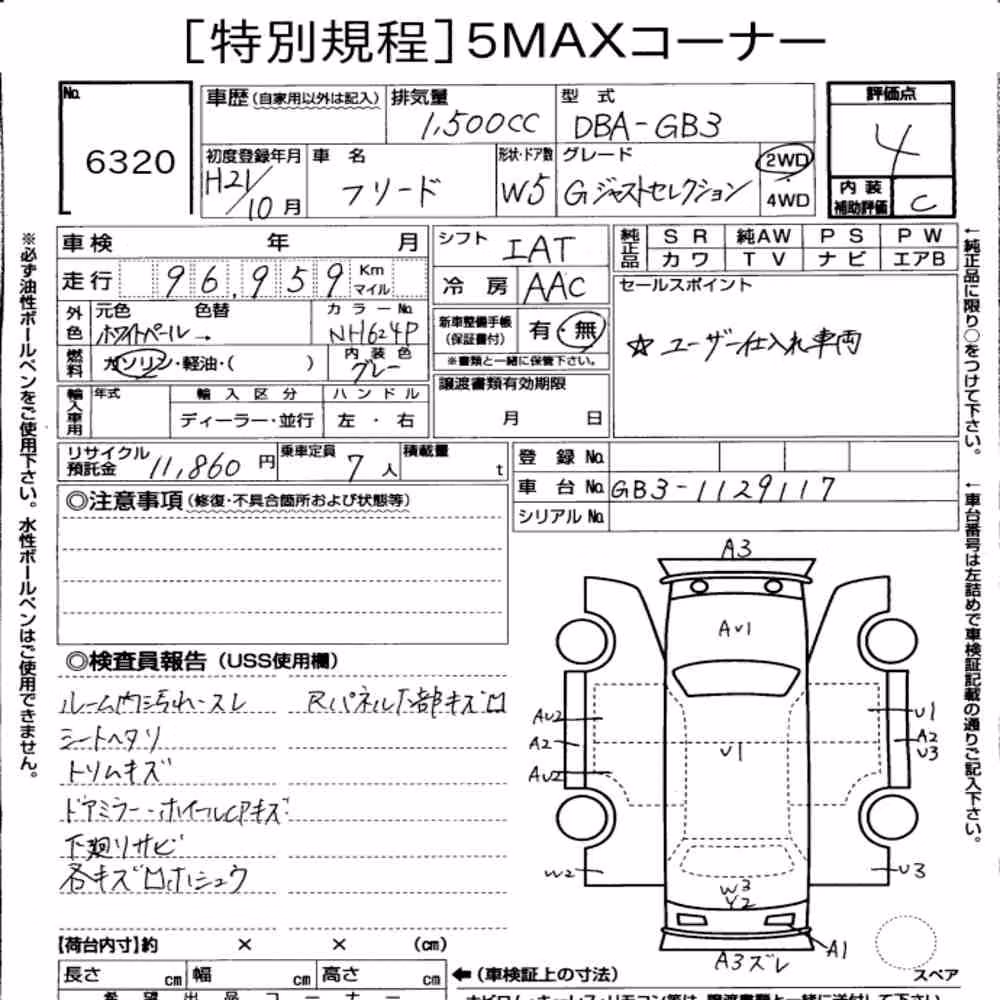 [特別規程]5MAXコーナー
No. 6320
車歴(自家用以外は記入) 排気量 1,500CC 型式 DBA-GB3
評価点 4
初度登録年月 H21/10月 車名 フリード 形状・ドア数 W5 グレード Gジャストセレクション 2WD・4WD
内装補助評価 C
車検 年 月
シフト IAT
純正品 SR 純AW PS PW
カワ TV ナビ エアB
走行 96,959 Km マイル
冷房 AAC
セールスポイント
☆ユーザー仕入れ車両
外色 元色 ホワイトパール→ 色替 カラーNo. NH624P
新車整備手帳(保証書付) 有・無
※書類と一緒に保管下さい。
燃料 ガソリン・軽油・( ) 内装色 グレー
譲渡書類有効期限 月 日
輸入車用 年式 輸入区分 ディーラー・並行 ハンドル 左・右
リサイクル預託金 11,860円 乗車定員 7人 積載量 t
登録No.
車台No. GB3-1129117
シリアルNo.
◎注意事項(修復・不具合箇所および状態等)
◎検査員報告(USS使用欄)
ルーム内汚れ・スレ Rパネル下部キズ凹
シートヘタリ
トリムキズ
ドアミラー・ホイールCPキズ
下廻りサビ
各キズ凹ホシュウ
A3
AV1
AU2
A2
AU2
U1
U1
A2
U3
W2
U3
W3
Y2
A1
A3ズレ
スペア
【荷台内寸】約 × × (cm)
長さ cm 幅 cm 高さ cm
←(車検証上の寸法)
希望出品コーナー
※必ず油性ボールペンをご使用下さい。水性ボールペンはご使用できません。
←純正品に限り○をつけて下さい。
←車台番号は左詰めで車検証記載の通りご記入下さい。